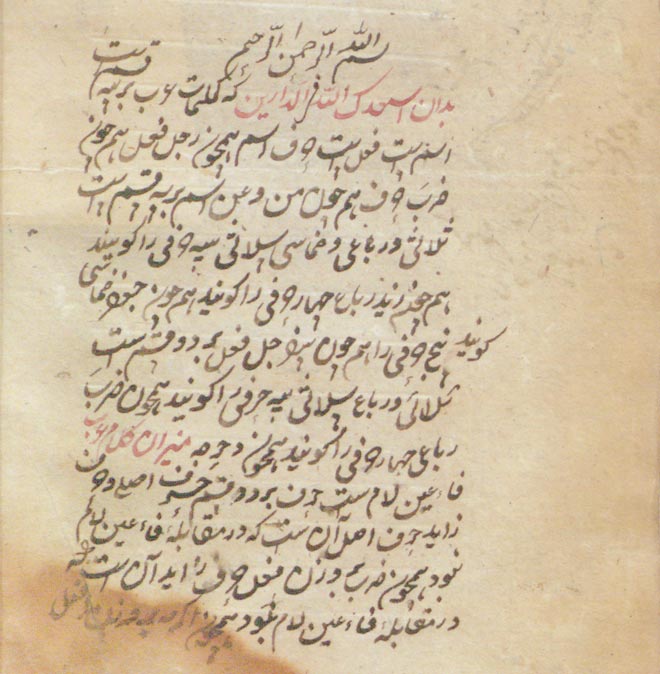 بسم الله الرحمن الرحیم
بدان اسعدک الله فی الدارین که کلمات عرب بر سه قسم است
اسم است فعل است حرف اسم همچون رجل فعل هم چون
ضرب حرف هم چون من و عن اسم بر سه قسم است
ثلاثی و رباعی و خماسی ثلاثی سه حرفی را کویند
هم چون زید رباع چهار حرفی را کویند هم چون جعفر خماسی
کویند پنج حرفی را هم چون سفرجل فعل بر دو قسم است
ثلاثی و رباع ثلاثی سه حرفی را کویند همچون ضرب
رباعی چهار حرفی را کویند همچون دحرجه میزان کلام عرب
فاء عین لام ست حرف بر دو قسم حرف اصلی و حرف
زاید حرف اصل آن ست که در مقابلهٔ فاء عین لام
بود همچون ضرب بوزن فعل حرف زاید آن است که
در مقابلهٔ فاء عین لام نبود همچون اکرم بر وزن افعل